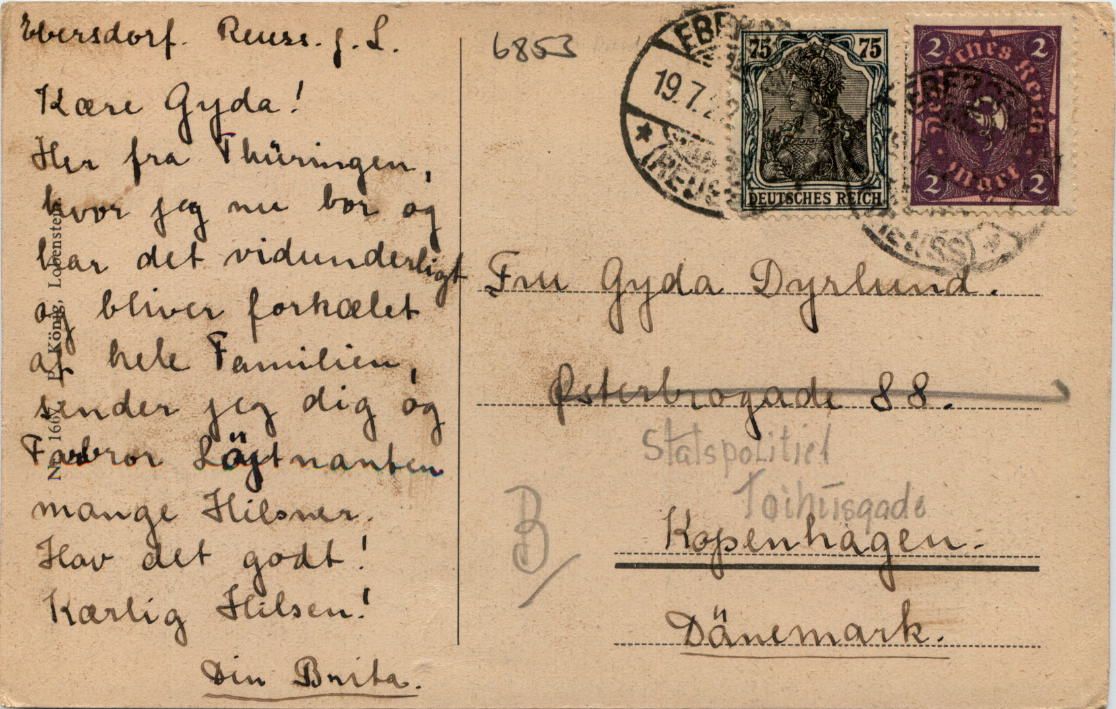 Ebersdorf. Reuss. j. L.
Kære Gyda!
Her fra Thüringen,
hvor jeg nu bor og
har det vidunderligt
og bliver forkælet
af hele Familien,
sender jeg dig og
Farbror Löjtnanten
mange Hilsner.
Hav det godt!
Kærlig Hilsen!
Din Brita.
P. König, Lobenstein.
6853
19.7.22
(REUSS
75 75
DEUTSCHES REICH
2 2
Deutsches Reich
2 2
EBER
REUSS
Fru Gyda Dyrlund.
Østerbrogade 88.
Statspolitiet
Toihusgade
B
Kopenhagen.
Dänemark.